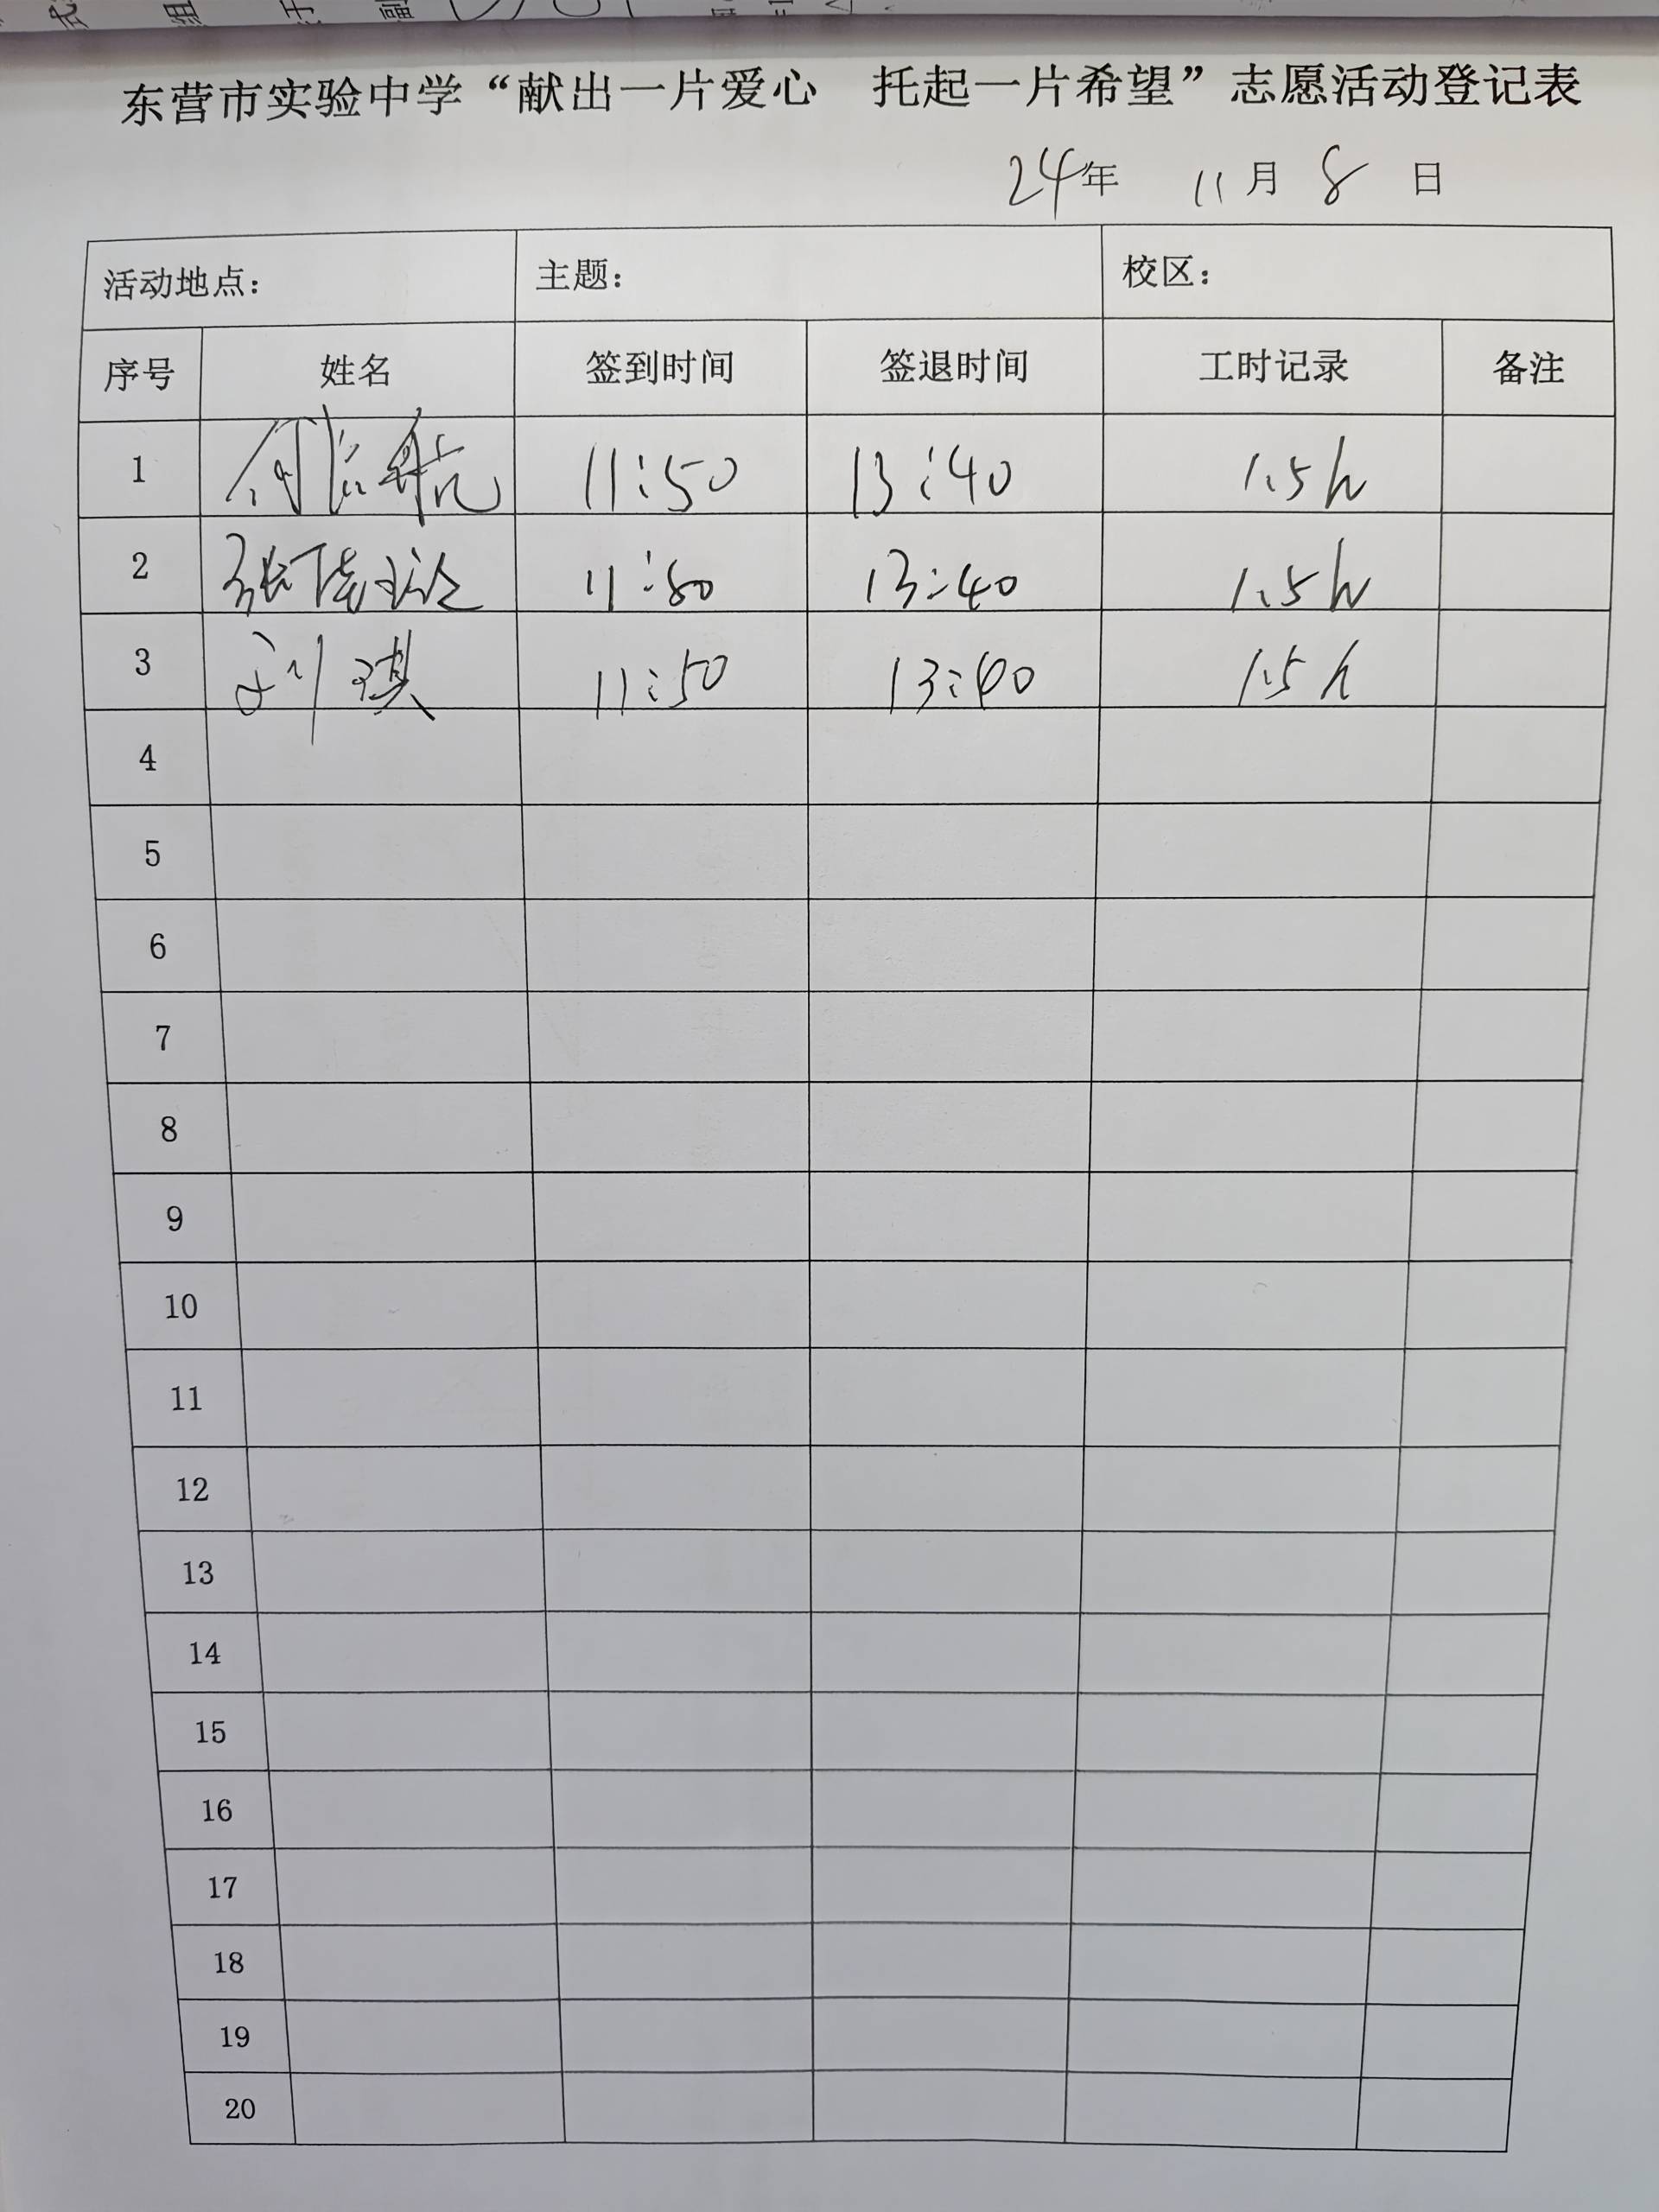 东营市实验中学“献出一片爱心 托起一片希望”志愿活动登记表
24年 11月 8日
活动地点: 主题: 校区:
序号 姓名 签到时间 签退时间 工时记录 备注
1 11:50 13:40 1.5h
2 张 11:50 13:40 1.5h
3 刘琪 11:50 13:40 1.5h
4
5
6
7
8
9
10
11
12
13
14
15
16
17
18
19
20